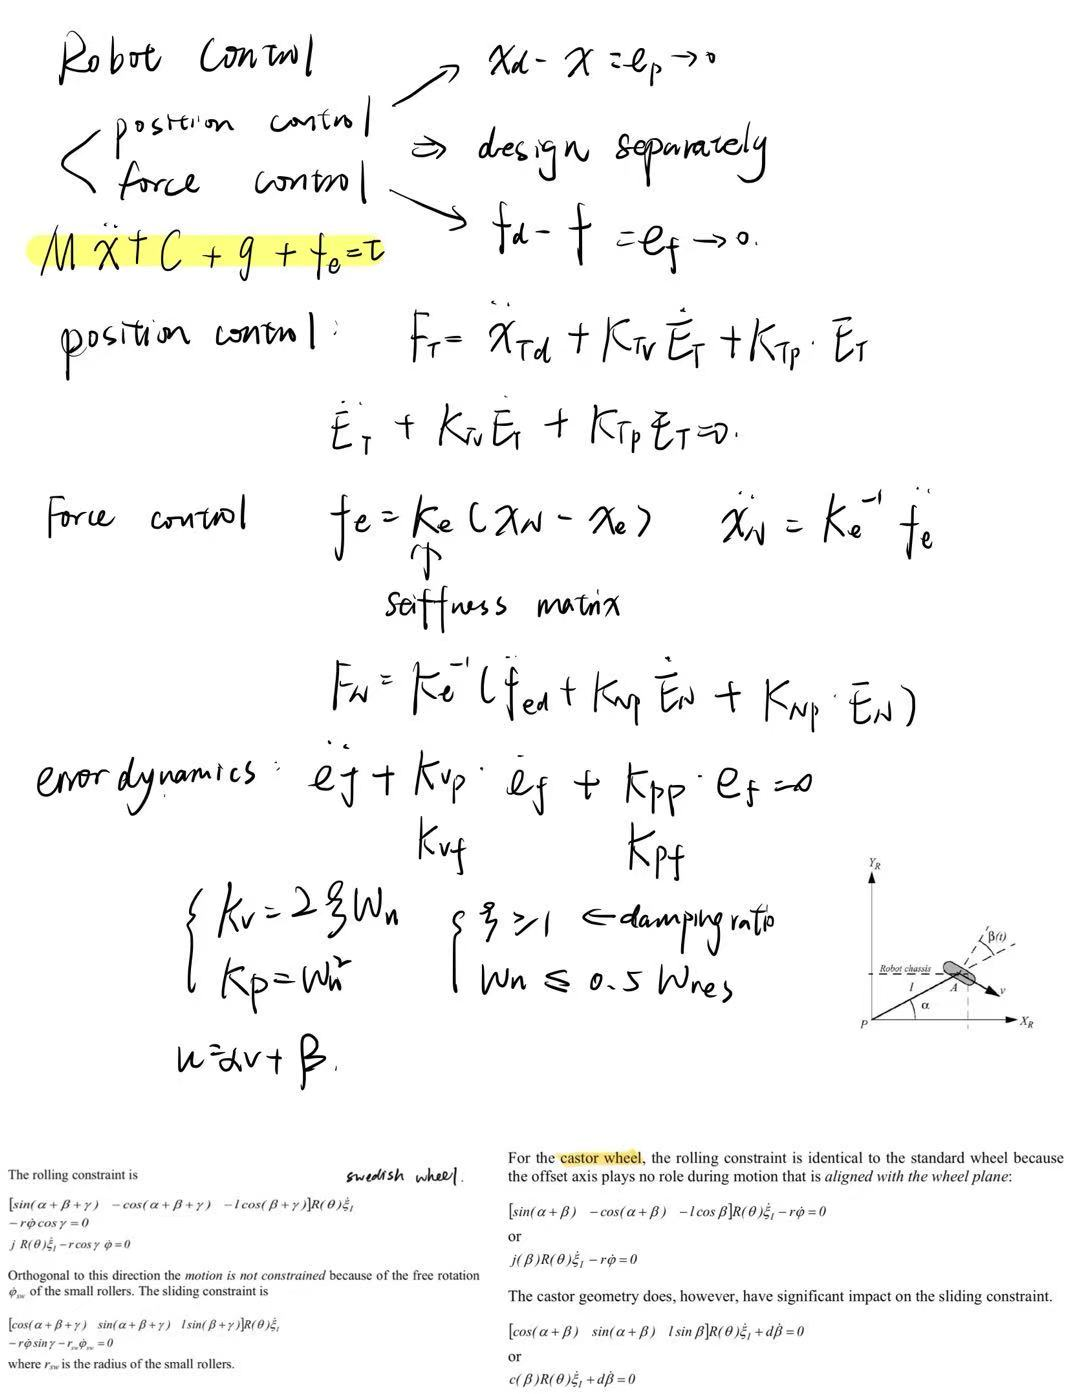 Robot Control
position control
force control
xd - x = ep → 0
⇒ design separately
fd - f = ef → 0.
Mẍ + C + g + fe = τ
position control: F_T = ẍ_Td + K_Tv Ė_T + K_Tp · E_T
Ë_T + K_Tv Ė_T + K_Tp E_T = 0.
Force control fe = Ke (x_N - x_e) ẍ_N = Ke⁻¹ f̈e
stiffness matrix
F_N = Ke⁻¹ ( f̈ed + K_Np Ė_N + K_Np · E_N )
error dynamics: ëf + Kvp · ėf + Kpp · ef = 0
Kvf Kpf
Kv = 2ξWn ξ ≥ 1 ← damping ratio
Kp = Wn² Wn ≤ 0.5 Wres
u = αv + β.
Y_R
β(t)
Robot chassis
l A v
α
P X_R
The rolling constraint is swedish wheel.
[sin(α + β + γ) − cos(α + β + γ) − l cos(β + γ)]R(θ)ξ̇_I
− rφ̇ cos γ = 0
j R(θ)ξ̇_I − r cos γ φ̇ = 0
Orthogonal to this direction the motion is not constrained because of the free rotation
φ̇_sw of the small rollers. The sliding constraint is
[cos(α + β + γ) sin(α + β + γ) l sin(β + γ)]R(θ)ξ̇_I
− rφ̇ sin γ − r_sw φ̇_sw = 0
where r_sw is the radius of the small rollers.
For the castor wheel, the rolling constraint is identical to the standard wheel because
the offset axis plays no role during motion that is aligned with the wheel plane:
[sin(α + β) − cos(α + β) − l cos β]R(θ)ξ̇_I − rφ̇ = 0
or
j(β)R(θ)ξ̇_I − rφ̇ = 0
The castor geometry does, however, have significant impact on the sliding constraint.
[cos(α + β) sin(α + β) l sin β]R(θ)ξ̇_I + dβ̇ = 0
or
c(β)R(θ)ξ̇_I + dβ̇ = 0